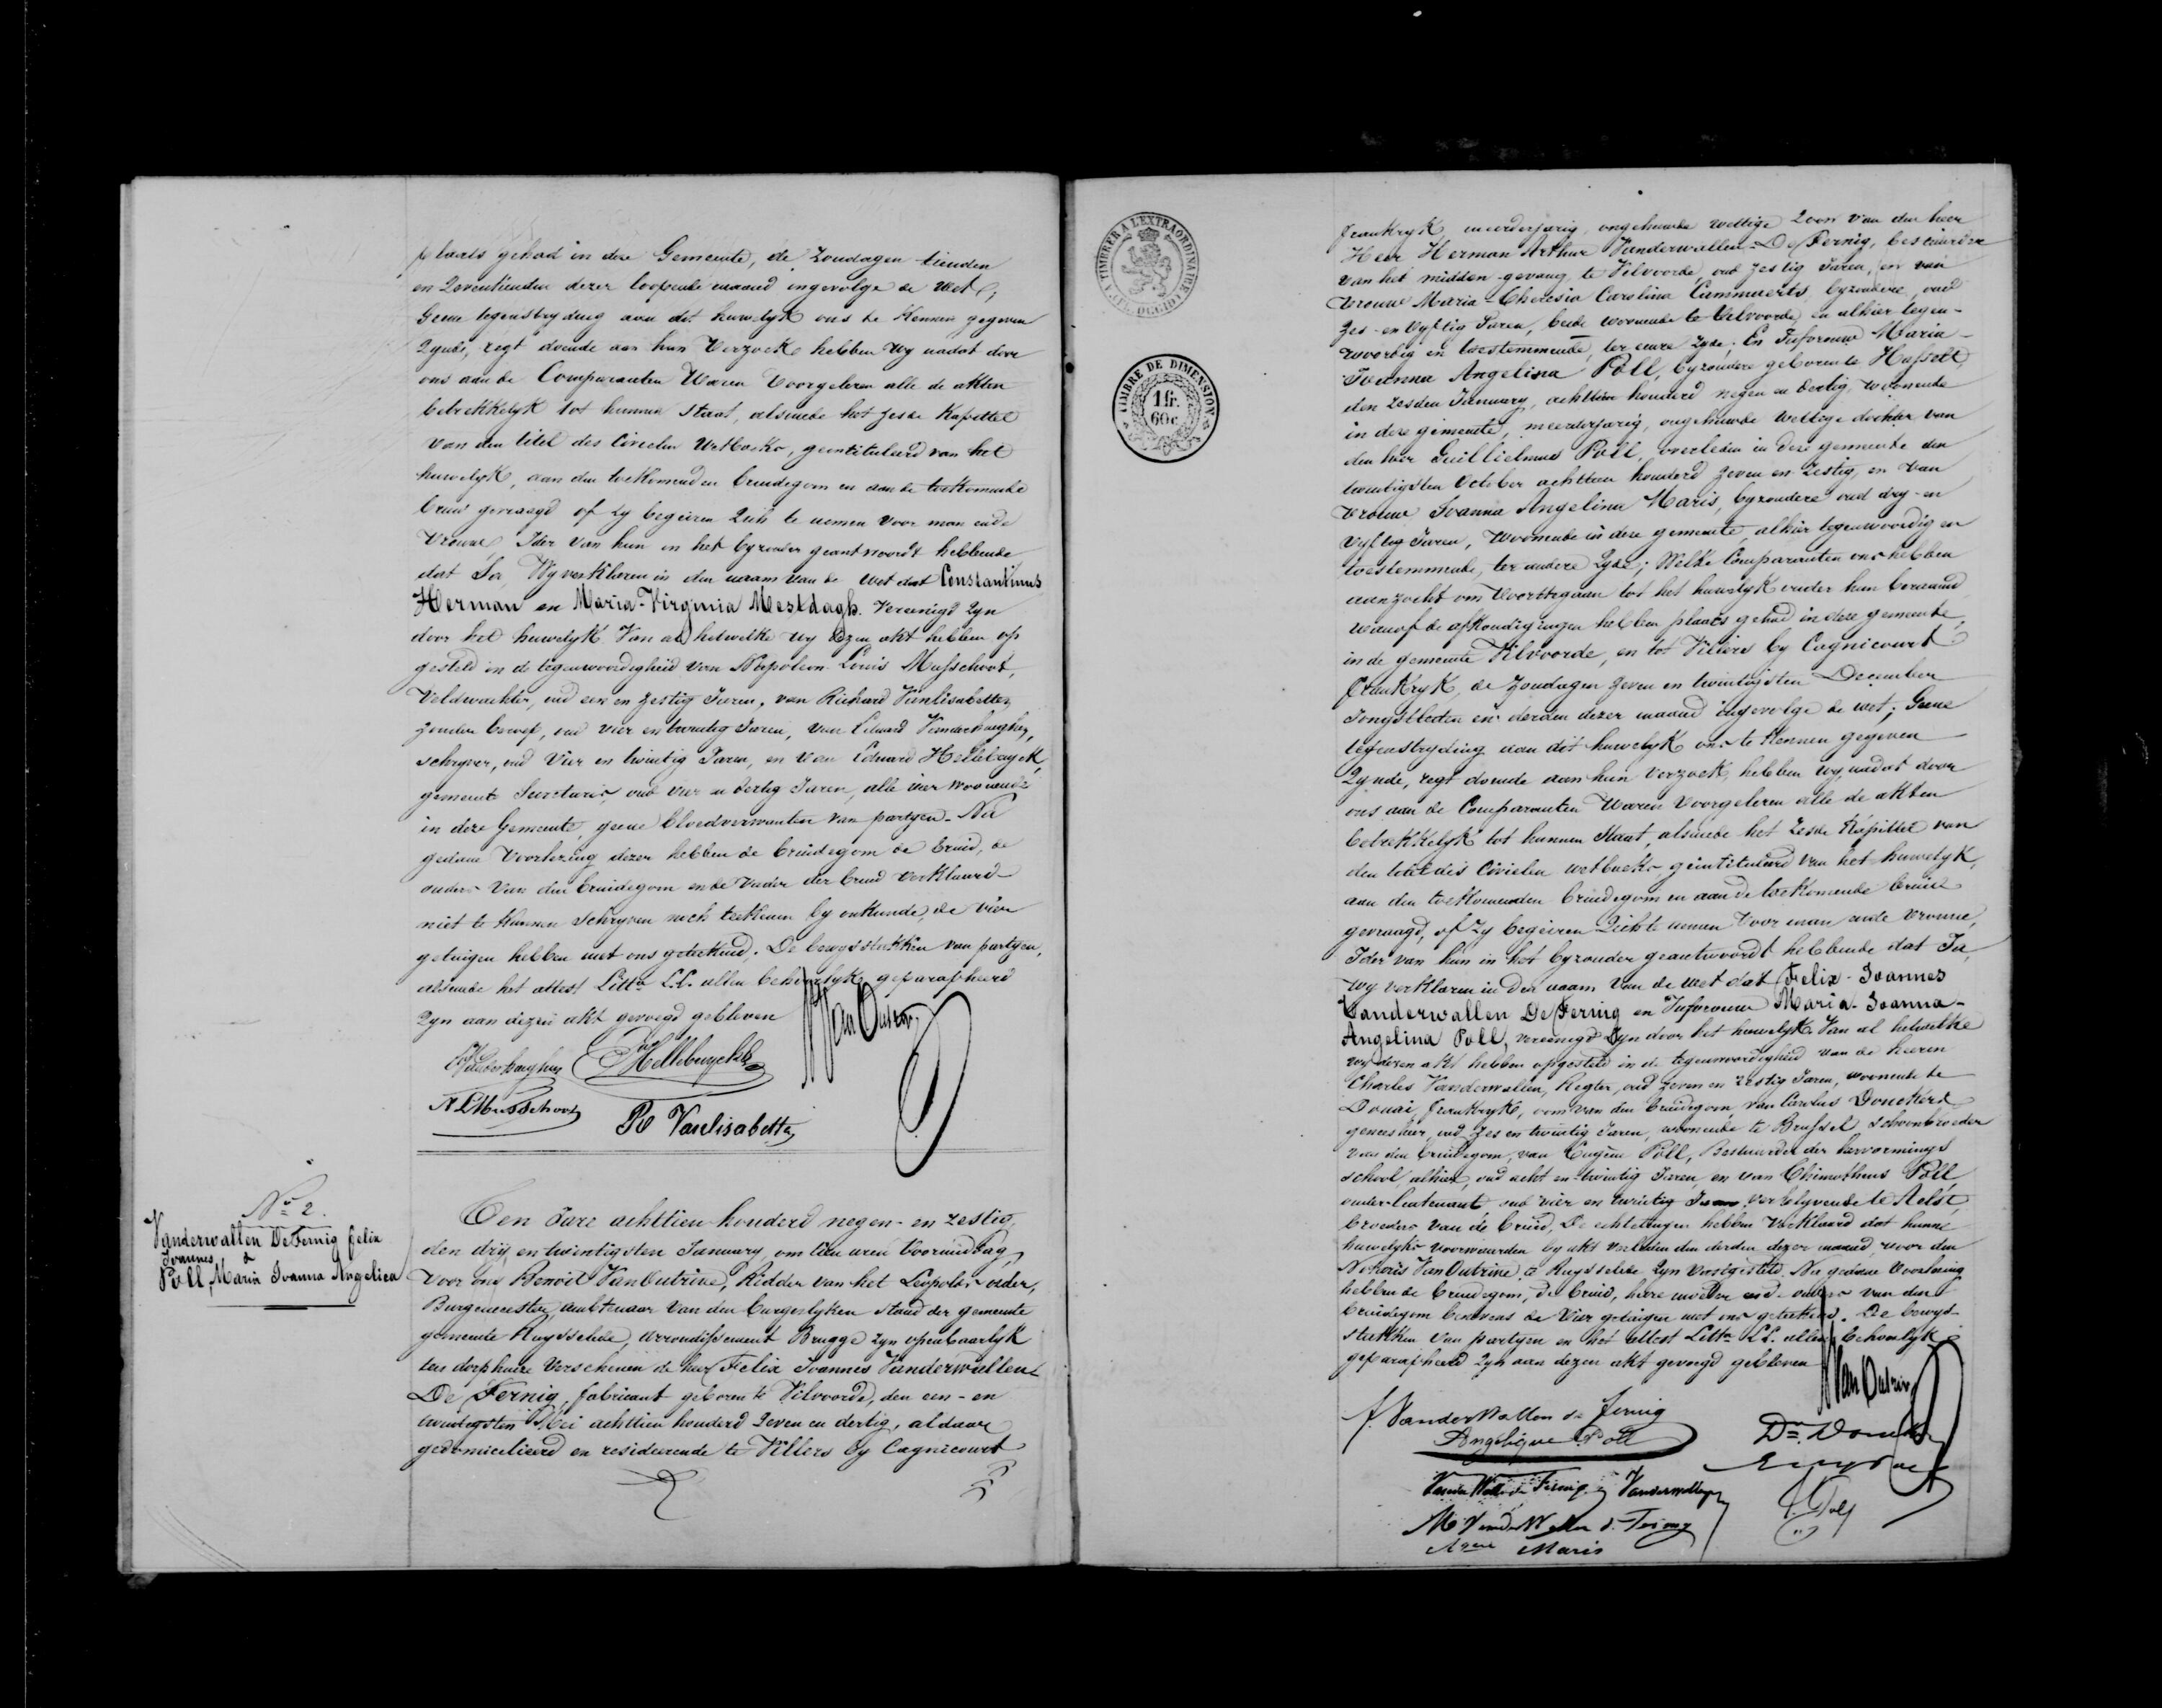 plaats gehad in deze Gemeente, de Zondagen tienden
en Zeventienden dezer loopende maand ingevolge de wet,
Geene tegenstryding aan dit huwelyk ons te Kennen gegeven
Zynde, regt doende aan hun Verzoek hebben Wy nadat door
ons aan de Comparanten Waren Voorgelezen alle de akten
betrekkelyk tot hunnen staat, alsmede het zesde Kapittel
van den titel des Civielen Wetboeks, geintituleerd van het
huwelyk, aan den toekomenden bruidegom en aan de toekomende
bruid gevraegd of zy begeiren Zich te nemen voor man ende
Vrouwe, Ider van hun in het byzonder geantwoordt hebbende
dat Ja, Wy verklaren in den naam van de Wet dat Constantinus
Herman en Maria-Virginia Mestdagh. Vereenigd Zyn
door het huwelyk. Van al hetwelke wy dezen akt hebben op
gesteld in de tegenwoordigheid van Napoleon Louis Musschoot,
Veldwachter, oud een en zestig Jaren, van Richard Vanlisabetten
zonder beroep, oud vier en twintig Jaren, van Eduard Vanderhaeghen,
schryver, oud Vier en twintig Jaren, en van Eduard Hellebuyck,
gemeente Secretaris, oud vier en dertig Jaren, alle vier woonende
in deze Gemeente, geene bloedverwanten van partyen. Na
gedane Voorlezing dezer hebben de bruidegom de bruid, de
ouders van den bruidegom en de Vader der bruid Verklaard
niet te Kunnen schryven noch teekenen by onkunde, de vier
getuigen hebben met ons geteekend. De bewysstukken van partyen,
alsmede het attest Litta L.L. allen behoorlyk geparapheerd
Zyn aan dezen akt gevoegd gebleven
Hellebuyck
N L Musschoot
R Vanlisabetten
B Van Outrive
No 2.
Vanderwallen DeFernig Felix
Joannes
&
Poll, Maria Joanna Angelica
Ten Jare achttien honderd negen- en zestig,
den dry en twintigsten January, om tien uren Voormiddag,
Voor ons Benoit VanOutrive, Ridder van het Leopolds-order,
Burgemeester, ambtenaar van den burgerlyken stand der gemeente
gemeente Ruysselede, arrondissement Brugge zyn openbaarlyk
ten dorphuize Verschenen de heer Felix Joannes Vanderwallen-
De Fernig, fabricant geboren te Vilvoorde, den een- en
twintigsten Mei achttien honderd Zeven en dertig, aldaar
gedomicilieerd en resideerende te Villers by Cagnicourt
TIMBRER A L'EXTRAORDINAIRE
TIMBRE DE DIMENSION
1 fr.
60c
frankryk, meerderjarig, ongehuwde wettige Zoon van den heer
Heer Herman Arthur Vanderwallen-De Fernig, bestuurder
van het midden-gevang te Vilvoorde, oud zestig Jaren, en van
Vrouwe Maria-Theresia Carolina Cammaerts, byzondere, oud
zes- en vyftig Jaren, beide woonende te Vilvoorde, en alhier tegen-
woordig en toestemmende, ter eenre zyde; En Jufvrouw Maria-
Joanna Angelina Poll, byzondere geboren te Hasselt,
den zesden January, achttien honderd negen en dertig, woonende
in deze gemeente, meerderjarig, ongehuwde wettige dochter van
den heer Guillielmus Poll, overleden in deze gemeente den
twintigsten October achttien honderd zeven en zestig, en van
Vrouwe Joanna Angelina Maris, byzondere oud dry- en
vyftig Jaren, Woonende in deze gemeente, alhier tegenwoordig en
toestemmende, ter andere Zyde; Welke Comparanten ons hebben
aanzocht om Voorttegaan tot het huwelyk onder hun beraamd
waarof de afkondigingen hebben plaats gehad in deze gemeente,
in de gemeente Vilvoorde, en tot Villers by Cagnicourt
frankryk, de zondagen zeven en twintigsten December
Jongstleden en derden dezer maand ingevolge de wet; Geene
tegenstryding aan dit huwelyk ons te Kennen gegeven
Zynde, regt doende aan hun Verzoek, hebben wy, nadat door
ons aan de Comparanten Waren Voorgelezen alle de akten
betrekkelyk tot hunnen Staat, alsmede het zesde Kapittel van
den titel des Civielen wetboeks, geintituleerd van het huwelyk,
aan den toekomenden bruidegom en aan de toekomende bruid
gevraagd, of Zy begeiren Zich te nemen Voor man ende vrouwe,
Ider van hun in het byzonder geantwoordt hebbende dat Ja,
wy verklaren in den naam van de wet dat Felix-Joannes
Vanderwallen De Fernig en Jufvrouw Maria-Joanna-
Angelina Poll, vereenigd Zyn door het huwelyk. Van al hetwelke
wy dezen akt hebben opgesteld in de tegenwoordigheid van de heeren
Charles Vanderwallen, Regter, oud zeven en zestig Jaren, woonende te
Douai, frankryk, oom van den bruidegom, van Carolus Donckers
geneesheer, oud zes en twintig Jaren, woonende te Brussel, schoonbroeder
van den bruidegom, van Eugene Poll, Bestuurder der hervormings
school, alhier, oud acht en twintig Jaren, en van Thimotheus Poll,
onder-luitenant oud vier en twintig Jaren verblyvende te Aelst,
broeders van de bruid, De echtelingen hebben Verklaard dat hunne
huwelyks voorwaarden by akt verleden den derden dezer maand, voor den
Notaris Van Outrive, te Ruysselede Zyn Vastgesteld. Na gedane Voorlezing
hebben de bruidegom, de bruid, hare moeder en de ouders van den
bruidegom benevens de Vier getuigen met ons geteekend. De bewys-
stukken Van partyen en het attest Litta L.L. allen behoorlyk
geparapheerd Zyn aan dezen akt gevoegd gebleven
B Van Outrive
f. VanderWallen de Fernig
Angélique Poll
Maris